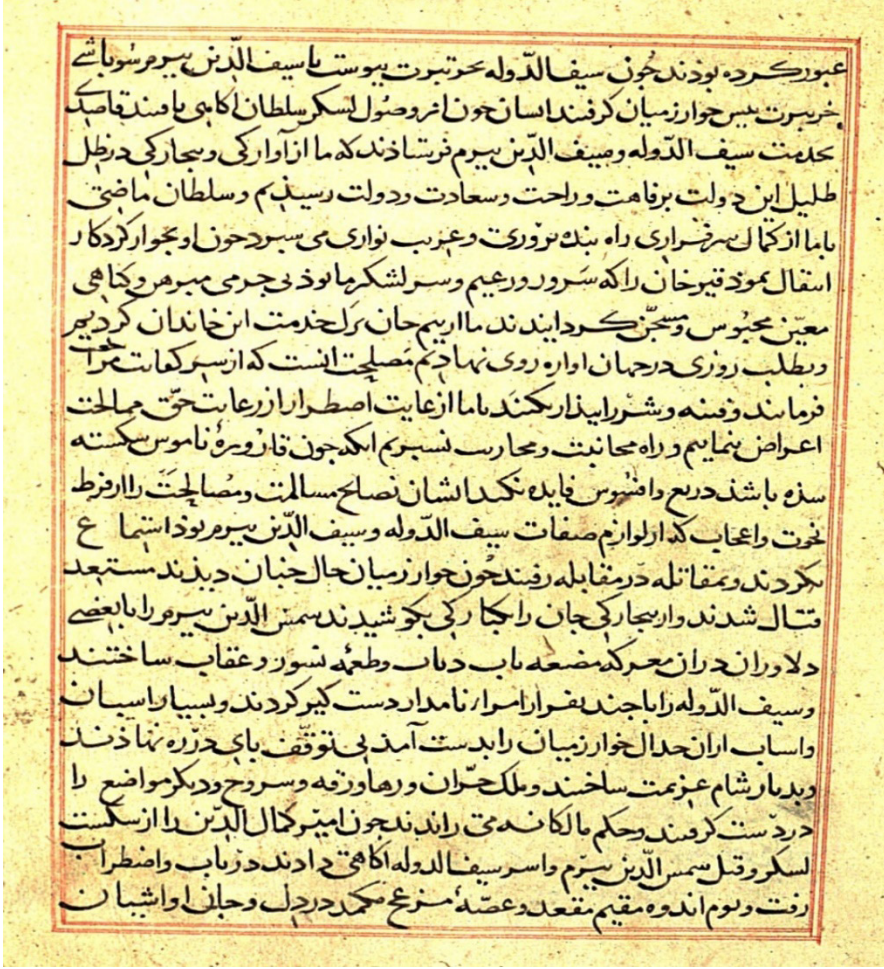 عبور کرده بودند چون سیف الدّوله بخرتبرت بپیوست با سیف الدّین بیرم سوباشی
خرتبرت پیس خوارزمیان گرفتند ایشان چون از وصول لسکر سلطان اکاهی یافتند قاصدی
بخدمت سیف الدّوله و سیف الدّین بیرم فرستاذند که ما از آوارکی و بیجارکی در ظل
ظلیل این دولت برفاهت و راحت و سعادت و دولت رسیذیم و سلطان ماضی
با ما از کمال سرفرازی راه بنده بروری و غریب نوازی می سبرد چون او بجوار کردکار
انتقال نموذ قیرخان را که سَرور و زعیم و سر لشکر ما بوذ بی جرمی مبرهن و کناهی
معیّن محبُوس و مسجّن کردایندند ما از بیم جان ترک خدمت این خاندان کردیم
و بطلب روزی در جهان اواره روی نهادیم مصلحت انست که از سر کفایت مراجعت
فرمایند و فتنه و شر را بیذار نکنند تا ما از غایت اضطرار از رعایت حقّ ممالحت
اعراض ننماییم و راه مجانبت و محاربت نسبریم انکه چون قارورهٔ ناموس سکسته
سذه باشذ دریغ و افسُوس فایده نکند ایشان نصایح مسالمت و مُصالحَت را از فرط
نخوت و اعجاب که از لوازم صفات سیف الدّوله و سیف الدّین بیرم بوذ استماع
نکردند و بمقاتله در مقابله رفتند چُون خوارزمیان حال جنان دیذند مستعد
قتال شدند و از بیجارکی جان را یکبارکی بکوشیدند سمس الدّین بیرم را با بعضی
دلاوران دران معرکه مضغهٔ ناب ذیاب و طعمهٔ نسور و عقاب ساختند
و سیف الدّوله را با جند نفر از امراء نامدار دست کیر کردند و بسیار اسبان
و اسباب از ان جدال خوارزمیان را بدست آمذ بی توقّف بای در ره نهاذند
و بدیار شام عزیمت ساختند و ملک حرّان و رها و رقه و سروج و دیکر مواضع را
در دست گرفتند و حکم مالکانه می راندند چون امیر کمال الدّین را از سکست
لسکر و قتل سمس الدّین بیرم و اسر سیف الدوله آکاهی دادند در تاب و اضطراب
رفت و نوم اندوه مقیم مقعد و غصّهٔ مزعج مکمد در دل و جان او اشیان